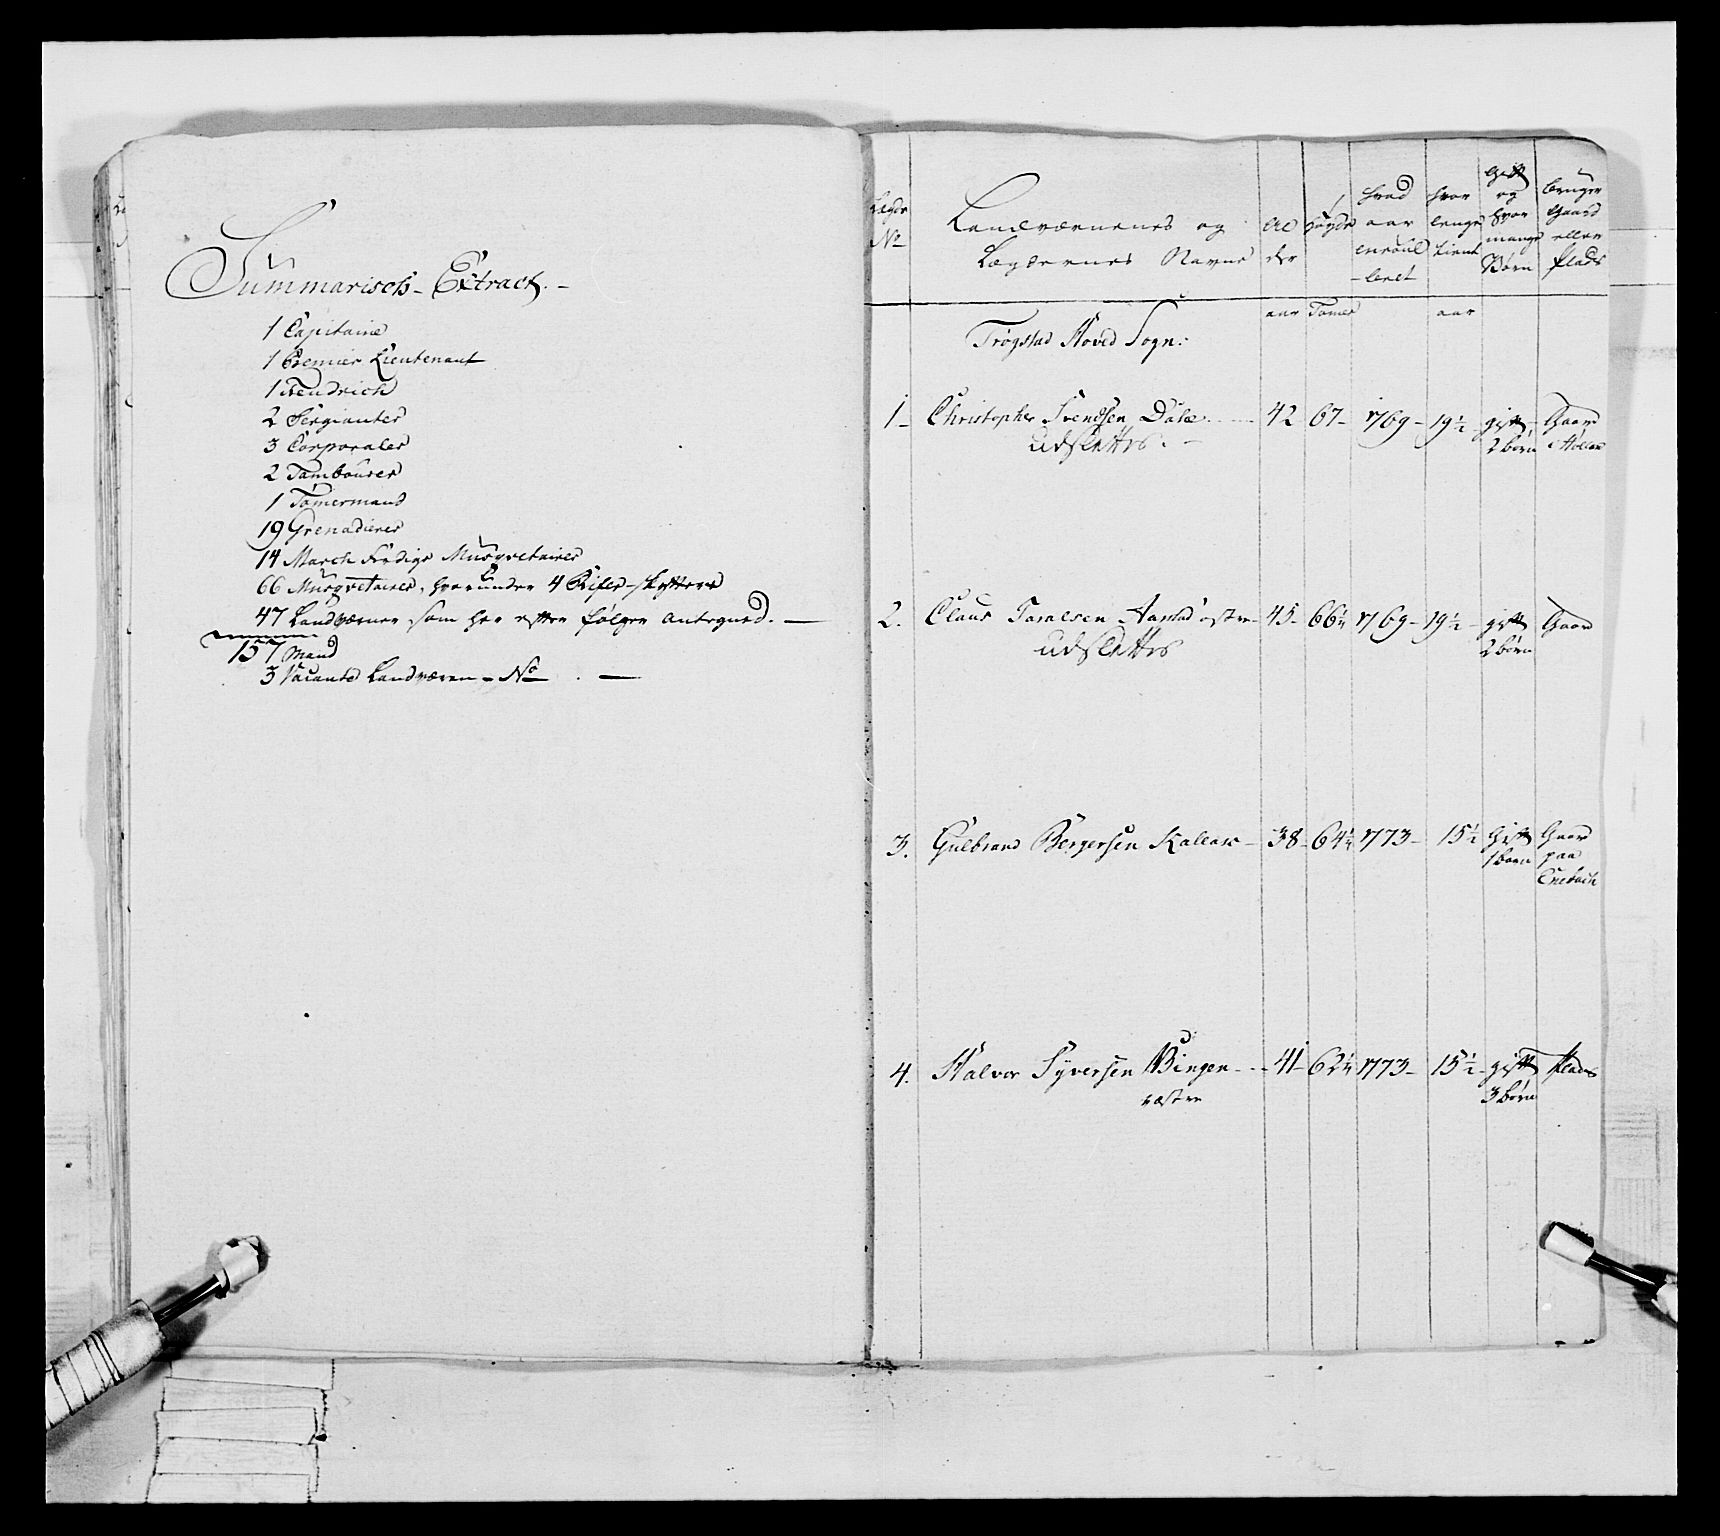 Summarisch Extract. -
1 Capitaine
1 Premier Lieutenant
1 Fendrich
2 Sergianter
3 Corporaler
2 Tambourer
1 Tømermand
19 Grenadierer
14 March Færdige Musqvetairer
66 Musqvetairer, hvorunder 4 Rifle-skyttere
47 Landværner som her efter følger antegned. -
157 Mand
3 Vacante Landværn - No -
Lægds No
Landværnenes og Lægdernes Navne
Alder
høyde
hvad aar enroulleret
hvor lenge tient
Gift og hvor mange Børn
bruger Gaard eller Plads
aar Tomer aar
Trøgstad Hoved Sogn:
1 - Christopher Svendsen Dale 42 67 - 1769 - 19 1/2 - gift 2 børn Gaard i
Udslettes. -
2. Claus Aastad østre - 45 - 66 1/4 1769 - 19 1/2 - gift 2 børn Gaard
Udslettes
3. Gulbrand Bergersen Kallax - 38 - 64 1/4 1773 - 15 1/2 Gift 1 børn Gaard paa Enebach
4. Halvor Syversen Bingen - 41 - 62 1/4 1773 - 15 1/2 - gift 3 børn Plads
vestre